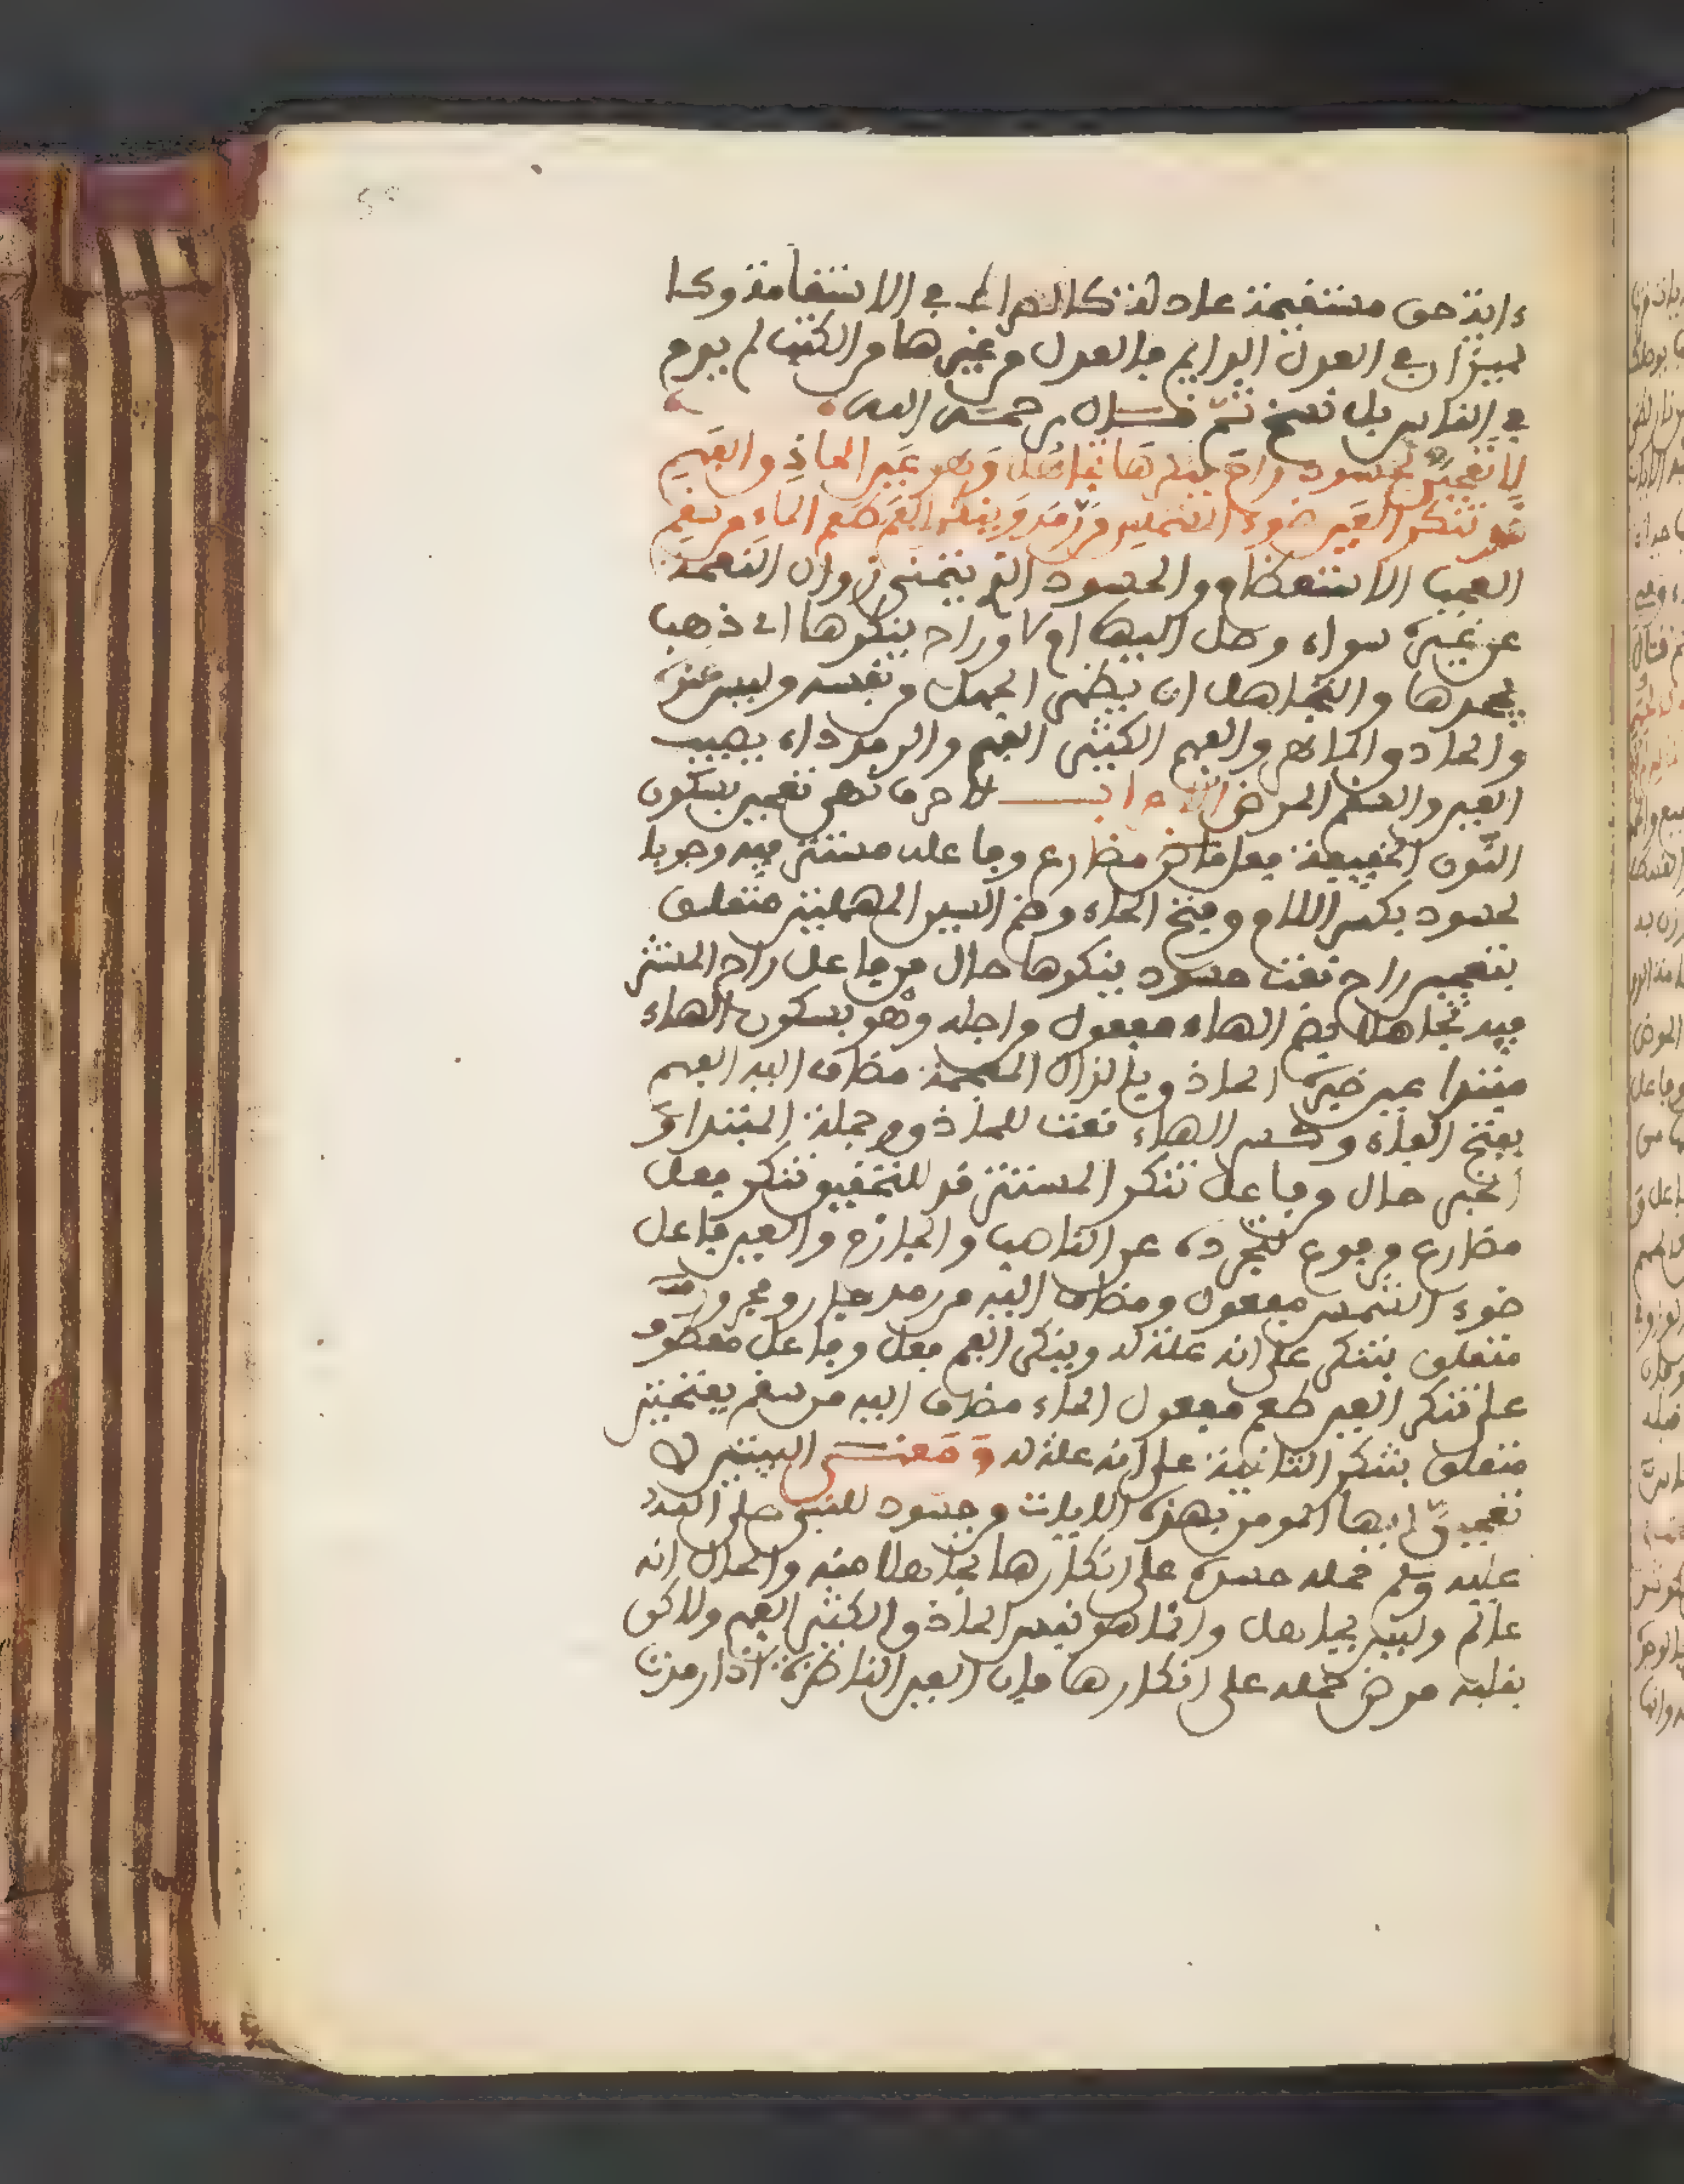 ءاية حق مستقيمة عادلة كالصراط في الاستقامة وكا
لميزان في العدل الدايم فالعدل من غيرها من الكتب لم يدم
في الناس بل نسخ ثم قال رحمه الله
لا تعجبن لحسود راح ينكرها تجاهلا وهو عين الحاذق الفهم
قد تنكر العين ضوء الشمس من رمد وينكر الفم طعم الماء من سقم
العجب الاستعظام والحسود الذي يتمنى زوال النعمة
عن غيره سواء وصل اليها ام لا وراح ينكرها اي ذهب
يجحدها والتجاهل ان يظهر الجهل من نفسه وليس عنده
والحاذق الماهر والفهم الكثير الفهم والرمد داء يصيب
العين والسقم المرض الاعراب لا حرف نهي تعجبن بسكون
النون الخفيفة فعل مضارع وفاعله مستتر فيه وجوبا
لحسود بكسر اللام وفتح الحاء وضم السين المهملتين متعلق
بتعجبن راح نعت حسود ينكرها حال من فاعل راح المستتر
فيه تجاهلا بضم الهاء مفعول من اجله وهو بسكون الهاء
مبتدا عين خبره الحاذق بالذال المعجمة مضاف اليه الفهم
بفتح الفاء وكسر الهاء نعت للحاذق وجملة المبتدا و
الخبر حال من فاعل تنكر المستتر قد للتحقيق تنكر فعل
مضارع مرفوع لتجرده عن الناصب والجازم والعين فاعل
ضوء الشمس مفعول ومضاف اليه من رمد جار ومجرور
متعلق بتنكر على انه علة له وينكر الفم فعل وفاعل معطوف
على تنكر العين طعم مفعول الماء مضاف اليه من سقم بفتحتين
متعلق بتنكر الثانية على انه علة له ومعنى البيتين لا
تعجبن ايها المومن بهذه الايات من حسود للنبي صلى الله
عليه وسلم حمله حسده على انكارها تجاهلا منه والحال انه
عالم وليس بجاهل وانما هو نفس الحاذق الكثير الفهم ولاكن
بقلبه مرض حمله على انكارها فان العين الناظرة اذا رمدت